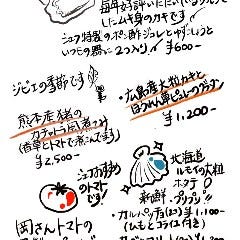 毎年好評いただいている
したムキ身のカキです
シェフ特製のポン酢ジュレとゆずこしょうと
いつもの器に2つ入り ¥600-
ジビエの季節です
・熊本産猪の
カチャトラ風煮(2)
(香草とトマトで煮こんでます)
¥2,500-
・広島産大粒カキと
ほうれん草ピュレのグラタン
¥1,200-
シェフおすすめの
トマトです!
岡さんトマトの
北海道
ルモイの大粒
ホタテ
新鮮・プリプリ!!
・カルパッチョ(2) ¥1,100-
(ひもとコライユ付き)